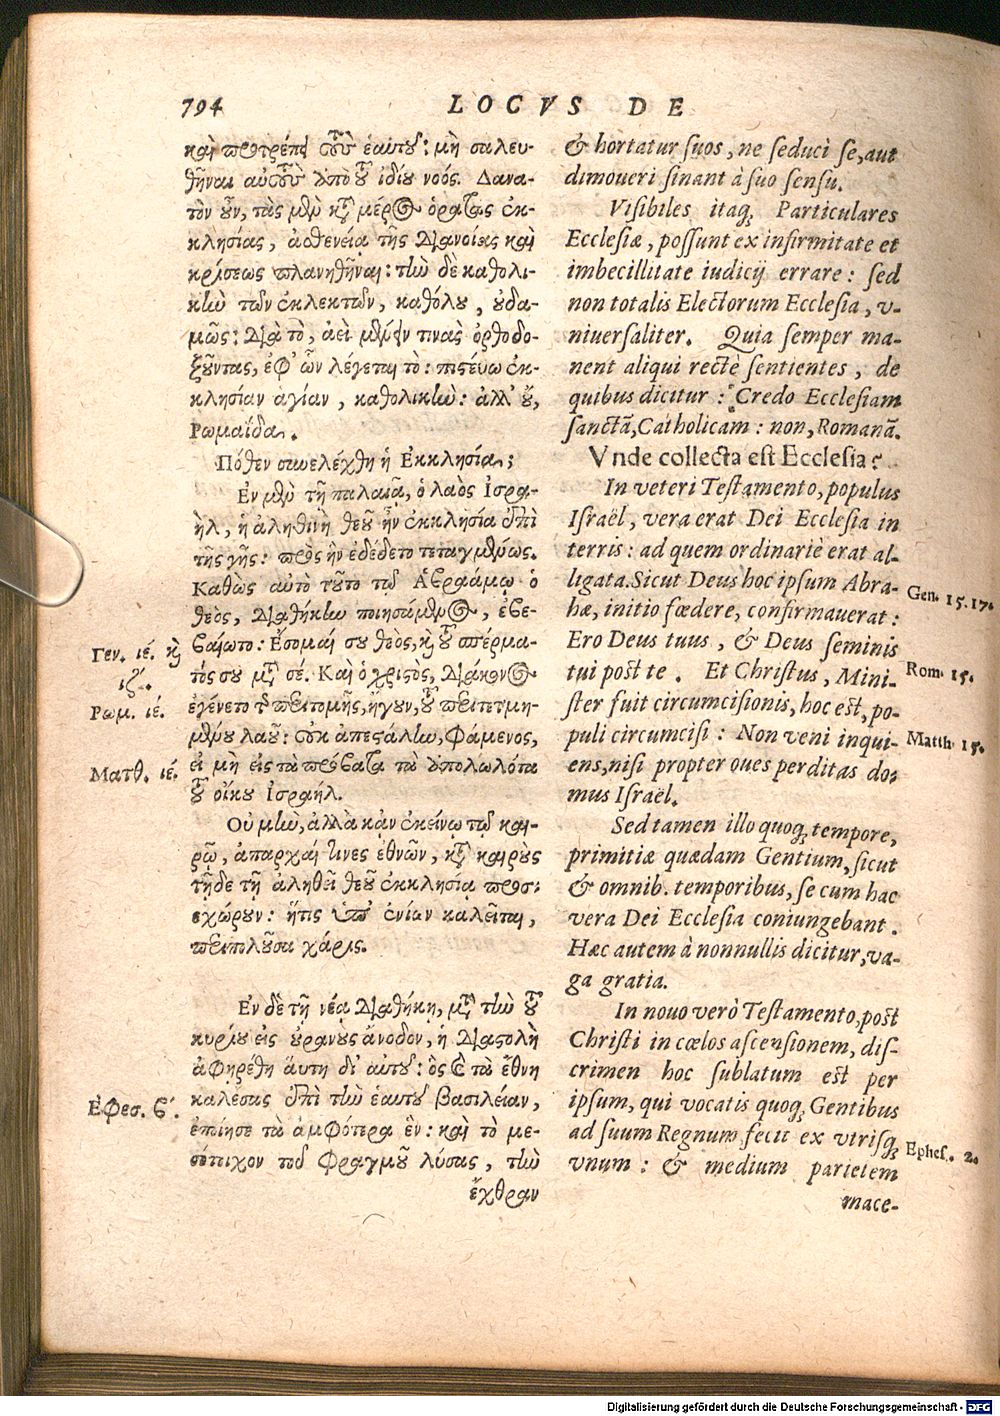 794 LOCVS DE
καὶ προτρέπει τοὺς ἑαυτοῦ: μὴ σαλευ-
θῆναι αὐτοὺς ἀπὸ τοῦ ἰδίου νοός. Δυνα-
τὸν οὖν, τὰς μὲν κατὰ μέρος ὁρατὰς ἐκ-
κλησίας, ἀσθενείᾳ τῆς διανοίας καὶ
κρίσεως πλανηθῆναι: τὴν δὲ καθολι-
κὴν τῶν ἐκλεκτῶν, καθόλου, οὐδα-
μῶς: διὰ τὸ, ἀεὶ μένειν τινὰς ὀρθοδο-
ξοῦντας, ἐφ' ὧν λέγεται τὸ: πιστεύω ἐκ-
κλησίαν ἁγίαν, καθολικὴν: ἀλλ' οὐ,
Ρωμαΐδα.
Πόθεν συνελέχθη ἡ Ἐκκλησία;
Ἐν μὲν τῇ παλαιᾷ, ὁ λαὸς Ἰσρα-
ὴλ, ἡ ἀληθινὴ θεοῦ ἦν ἐκκλησία ἐπὶ
τῆς γῆς: πρὸς ἣν ἐδέδετο τεταγμένως.
Καθὼς αὐτὸ τοῦτο τῷ Ἀβραάμῳ ὁ
θεὸς, διαθήκην ποιησάμενος, ἐβε-
βαίωτο: Ἔσομαί σου θεὸς, καὶ τοῦ σπέρμα-
τός σου μετὰ σέ. Καὶ ὁ χριστὸς, διάκονος
ἐγένετο τῆς περιτομῆς, ἤγουν, τοῦ περιτετμη-
μένου λαοῦ: οὐκ ἀπεστάλην, φάμενος,
εἰ μὴ εἰς τὰ πρόβατα τὰ ἀπολωλότα
τοῦ οἴκου Ἰσραήλ.
Οὐ μὴν, ἀλλὰ κἀν ἐκείνῳ τῷ και-
ρῷ, ἀπαρχαί τινες ἐθνῶν, κατὰ καιροὺς
τῇδε τῇ ἀληθεῖ θεοῦ ἐκκλησίᾳ προσ-
εχώρουν: ἥτις ὑπ' ἐνίων καλεῖται,
περιπολοῦσα χάρις.
Ἐν δὲ τῇ νέᾳ διαθήκῃ, μετὰ τὴν τοῦ
κυρίου εἰς οὐρανοὺς ἄνοδον, ἡ διαστολὴ
ἀφῃρέθη αὕτη δι' αὐτοῦ: ὃς καὶ τὰ ἔθνη
καλέσας ἐπὶ τὴν ἑαυτοῦ βασιλείαν,
ἐποίησε τὰ ἀμφότερα ἓν: καὶ τὸ με-
σότοιχον τοῦ φραγμοῦ λύσας, τὴν
ἔχθραν
Γεν. ιέ. καὶ
ιζ.
Ρωμ. ιέ.
Ματθ. ιέ.
Ἐφεσ. β'.
& hortatur suos, ne seduci se, aut
dimoueri sinant à suo sensu.
Visibiles itaq; Particulares
Ecclesiæ, possunt ex infirmitate et
imbecillitate iudicij errare: sed
non totalis Electorum Ecclesia, v-
niuersaliter. Quia semper ma-
nent aliqui rectè sentientes, de
quibus dicitur: Credo Ecclesiam
sanctã, Catholicam: non, Romanã.
Vnde collecta est Ecclesia?
In veteri Testamento, populus
Israël, vera erat Dei Ecclesia in
terris: ad quem ordinariè erat al-
ligata. Sicut Deus hoc ipsum Abra-
hæ, initio fœdere, confirmauerat:
Ero Deus tuus, & Deus seminis
tui post te. Et Christus, Mini-
ster fuit circumcisionis, hoc est, po-
puli circumcisi: Non veni inqui-
ens, nisi propter oues perditas do-
mus Israël.
Sed tamen illo quoq; tempore,
primitiæ quædam Gentium, sicut
& omnib. temporibus, se cum hac
vera Dei Ecclesia coniungebant.
Hæc autem à nonnullis dicitur, va-
ga gratia.
In nouo verò Testamento, post
Christi in cœlos ascensionem, dis-
crimen hoc sublatum est per
ipsum, qui vocatis quoq; Gentibus
ad suum Regnum fecit ex vtrisq;
vnum: & medium parietem
mace-
Gen. 15. 17.
Rom. 15.
Matth. 15.
Ephes. 2.
Digitalisierung gefördert durch die Deutsche Forschungsgemeinschaft - DFG